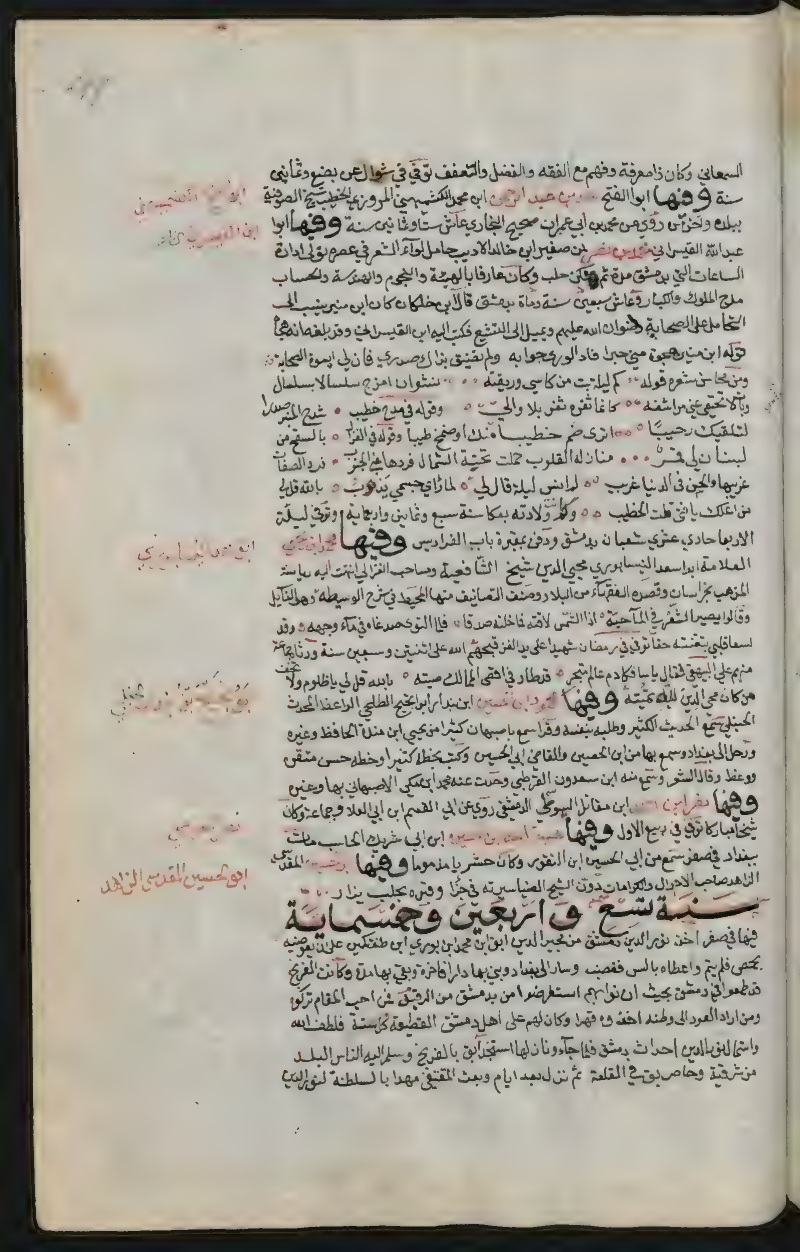 السمعاني وكان ذا معرفة وفهم مع الفقه والفضل والتعفف توفي في شوال عن بضع وثمانين
سنة وفيها ابو الفتح محمد بن عبد الرحمن ابن محمد الكشميهني المروزي الخطيب شيخ الصوفية
ببلده واخر من روى عن محمد بن ابي عمران صحيح البخاري عاش ستا وثمانين سنة وفيها ابو
عبد الله القيسراني محمد بن نصر بن صغير ابن خالد الاديب حامل لواء الشعر في عصره تولى ادارة
الساعات التي بدمشق مدة ثم سكن حلب وكان عارفا بالهيئة والنجوم والهندسة والحساب
مدح الملوك والكبار وعاش سبعين سنة ومات بدمشق قال ابن خلكان كان ابن منير ينسب الى
التحامل على الصحابة رضوان الله عليهم ويميل الى التشيع فكتب اليه ابن القيسراني وقد بلغه انه هجاه
قوله ابن منير هجوت مني حبرا افاد الورى جوابه ولم يضيق بذاك صدري فان لي اسوة الصحابة
ومن محاسن شعره قوله كم ليلة بت من كاسي وريقته نشوان امزج سلسالا بسلسال
وبات لا تحتمي عني مراشفه كانما ثغره ثغر بلا والي وقوله في مدح خطيب شرح المنبر صدرا
لتلقيك رحيبا اترى ضم خطيبا منك او ضمخ طيبا وقوله في الغزل بالسفح من
لبنان لي قمر منازله القلوب حملت تحيته الشمال فردها عني الجنوب فرد الصفات
غريبها والحسن في الدنيا غريب لم انس ليلة قال لي لما راى جسمي يذوب بالله قل لي
من اعلك يا فتى قلت الطبيب وكانت ولادته بعكا سنة سبع وثمانين واربعماية وتوفي ليلة
الاربعا حادي عشري شعبان بدمشق ودفن بمقبرة باب الفراديس وفيها محمد بن يحيى
العلامة ابو اسعد النيسابوري محيي الدين شيخ الشافعية وصاحب الغزالي انتهت اليه رياسة
المذهب بخراسان وقصده الفقهاء من البلاد وصنف التصانيف منها المحيط في شرح الوسيط وهو القايل
وقالوا يصير الشعر في الماء حية اذا الشمس لاقته فما خلته صدقا فلما التوى صدغاه في ماء وجهه وقد
لسعا قلبي تيقنته حقا توفي في رمضان شهيدا على يد الغز قبحهم الله على اثنتين وسبعين سنة ورثاه جماعة
منهم علي البيهقي فقال يا سافكا دم عالم متبحر قد طار في اقصى الممالك صيته بالله قل لي يا ظلوم ولا تخف
من كان محي الدين كيف تميته وفيها محمود ابن الحسين ابن بندار ابو نجيح الطلحي الواعظ المحدث
الحنبلي سمع الحديث الكثير وطلبه بنفسه وقرا سمع باصبهان كثيرا من يحيى ابن مندة الحافظ وغيره
ورحل الى بغداد وسمع بها من ابن الحصين والقاضي ابي الحسين وكتب بخطه كثيرا وخطه حسن متقن
ووعظ وقال الشعر وسمع منه ابن سعدون القرطبي وحدث عنه محمد ابن مكي الاصبهاني بها وغيره
وفيها نصر ابن احمد ابن مقاتل السوسي الدمشقي روى عن ابي القسم ابن ابي العلا وجماعة وكان
شيخا مباركا توفي في ربيع الاول وفيها هبة الله بن حسين ابن ابي شريك الحاسب مات
ببغداد في صفر سمع من ابي الحسين ابن النقور وكان حشريا مذموما وفيها ابو الحسين المقدسي
الزاهد صاحب الاحوال والكرامات دون الشيخ الضيا سيرته في جزء وقبره بحلب يزار
سنة تسع واربعين وخمسماية
فيها في صفر اخذ نور الدين دمشق من مجير الدين ابق ابن محمد ابن بوري ابن طغتكين على ان يعوضه
بحمص فلم يتم واعطاه بالس فغضب وسار الى بغداد وبنى بها دارا فاخرة وبقي بها مدة وكانت الفرنج
قد طمعوا في دمشق بحيث ان نوابهم استعرضوا من بدمشق من الرقيق فمن احب المقام تركوه
ومن اراد العود الى وطنه اخذوه قهرا وكان لهم على اهل دمشق القطيعة كل سنة فلطف الله
واستمال نور الدين احداث دمشق فلما جاء ونازلها استنجد ابق بالفرنج وسلم اليه الناس البلد
من شرقية وحاصر ابق في القلعة ثم نزل بعد ايام وبعث المقتفي عهدا بالسلطنة لنور الدين
ابن القيسراني
ابو الحسين المقدسي الزاهد